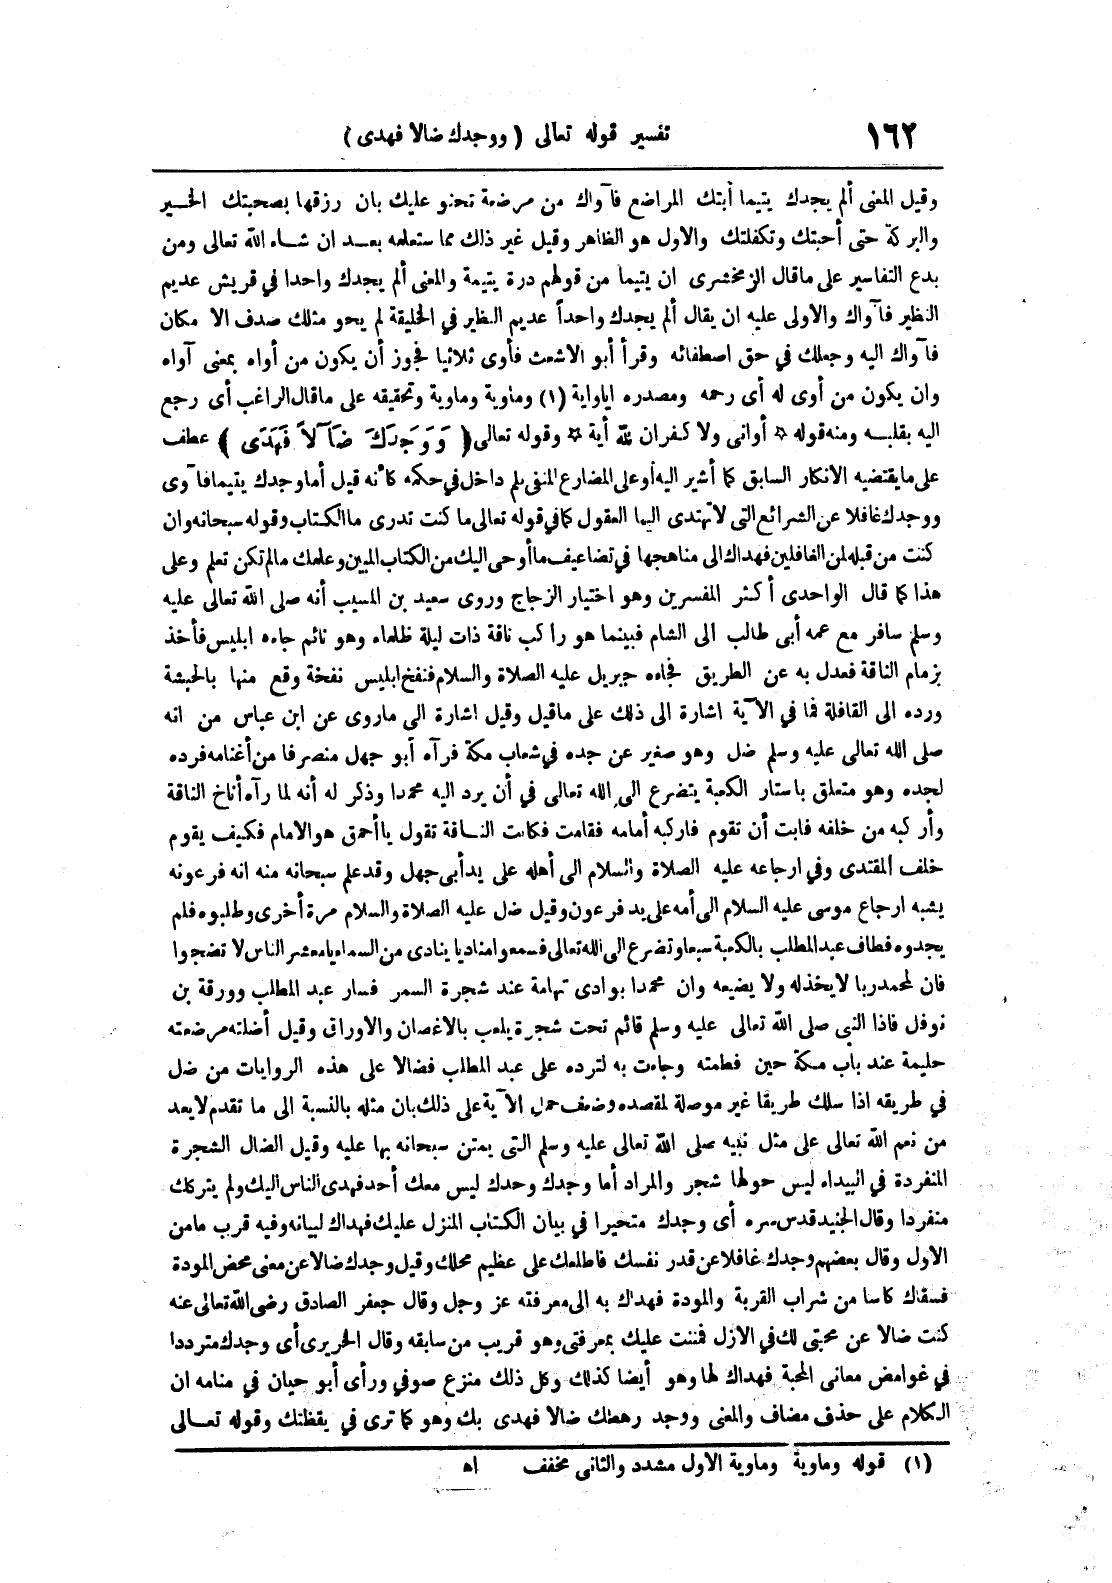 ١٦٢
تفسير قوله تعالى ( ووجدك ضالا فهدى )
وقيل المعنى ألم يجدك يتيما أبتك المراضع فآواك من مرضعة تحنو عليك بان رزقها بصحبتك الخــير
والبركة حتى أحبتك وتكفلتك والاول هو الظاهر وقيل غير ذلك مما ستعلمه بعــد ان شــاء الله تعالى ومن
بدع التفاسير على ماقال الزمخشرى ان يتيما من قولهم درة يتيمة والمعنى ألم يجدك واحدا في قريش عديم
النظير فآواك والاولى عليه ان يقال ألم يجدك واحداً عديم النظير في الخليقة لم يحو مثلك صدف الامكان
فآواك اليه وجعلك في حق اصطفائه وقرأ أبو الاشعث فأوى ثلاثيا فجوز أن يكون من أواه بمعنى آواه
وان يكون من أوى له أى رحمه ومصدره اياواية (١) وماوية وماوية وتحقيقه على ماقال الراغب أى رجع
اليه بقلبــه ومنه قوله * أوانى ولا كفران لله أية * وقوله تعالى ( وَوَجَدَكَ ضَآلاًّ فَهَدَى ) عطف
على مايقتضيه الانكار السابق كما أشير اليه أو على المضارع المنفى بلم داخل في حكمه كأنه قيل أما وجدك يتيما فآوى
ووجدك غافلا عن الشرائع التى لا تهتدى اليها العقول كما في قوله تعالى ما كنت تدرى ما الكتاب وقوله سبحانه وان
كنت من قبله لمن الغافلين فهداك الى مناهجها في تضاعيف ما أوحى اليك من الكتاب المبين وعلمك مالم تكن تعلم وعلى
هذا كما قال الواحدى أكثر المفسرين وهو اختيار الزجاج وروى سعيد بن المسيب أنه صلى الله تعالى عليه
وسلم سافر مع عمه أبى طالب الى الشام فبينما هو راكب ناقة ذات ليلة ظلماء وهو نائم جاءه ابليس فأخذ
بزمام الناقة فعدل به عن الطريق فجاءه جبريل عليه الصلاة والسلام فنفخ ابليس نفخة وقع منها بالحبشة
ورده الى القافلة فما في الآية اشارة الى ذلك على ماقيل وقيل اشارة الى ماروى عن ابن عباس من انه
صلى الله تعالى عليه وسلم ضل وهو صغير عن جده في شعاب مكة فرآه أبو جهل منصرفا من أغنامه فرده
لجده وهو متعلق باستار الكعبة يتضرع الى الله تعالى في أن يرد اليه محمدا وذكر له أنه لما رآه أناخ الناقة
وأركبه من خلفه فابت أن تقوم فاركبه أمامه فقامت فكانت النــاقة تقول يا أحمق هو الامام فكيف يقوم
خلف المقتدى وفي ارجاعه عليه الصلاة والسلام الى أهله على يد أبى جهل وقد علم سبحانه منه انه فرعونه
يشبه ارجاع موسى عليه السلام الى أمه على يد فرعون وقيل ضل عليه الصلاة والسلام مرة أخرى وطلبوه فلم
يجدوه فطاف عبد المطلب بالكعبة سبعا وتضرع الى الله تعالى فسمعوا مناديا ينادى من السماء يا معشر الناس لا تضجوا
فان لمحمد ربا لا يخذله ولا يضيعه وان محمدا بوادى تهامة عند شجرة السمر فسار عبد المطلب وورقة بن
نوفل فاذا النبى صلى الله تعالى عليه وسلم قائم تحت شجرة يلعب بالاغصان والاوراق وقيل أضلته مرضعته
حليمة عند باب مكة حين فطمته وجاءت به لترده على عبد المطلب فضالا على هذه الروايات من ضل
في طريقه اذا سلك طريقا غير موصلة لمقصده وضعف حمل الآية على ذلك بان مثله بالنسبة الى ما تقدم لا يعد
من نعم الله تعالى على مثل نبيه صلى الله تعالى عليه وسلم التى يمتن سبحانه بها عليه وقيل الضال الشجرة
المنفردة في البيداء ليس حولها شجر والمراد أما وجدك وحدك ليس معك أحد فهدى الناس اليك ولم يتركك
منفردا وقال الجنيد قدس سره أى وجدك متحيرا في بيان الكتاب المنزل عليك فهداك لبيانه وفيه قرب مامن
الاول وقال بعضهم وجدك غافلا عن قدر نفسك فاطلعك على عظيم محلك وقيل وجدك ضالا عن معنى محض المودة
فسقاك كاسا من شراب القربة والمودة فهداك به الى معرفته عز وجل وقال جعفر الصادق رضى الله تعالى عنه
كنت ضالا عن محبتى لك في الازل فمننت عليك بمعرفتى وهو قريب من سابقه وقال الحريرى أى وجدك مترددا
في غوامض معانى المحبة فهداك لها وهو أيضا كذلك وكل ذلك منزع صوفي ورأى أبو حيان في منامه ان
الكلام على حذف مضاف والمعنى ووجد رهطك ضالا فهدى بك وهو كما ترى في يقظتك وقوله تعــالى
(١) قوله وماوية وماوية الاول مشدد والثانى مخفف اه